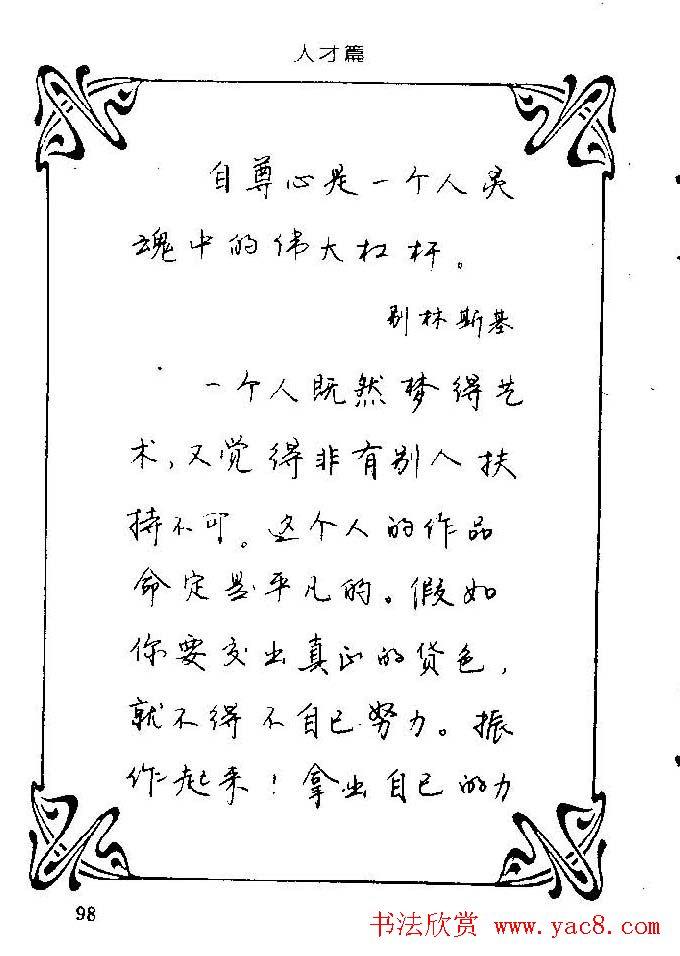 人才篇
自尊心是一个人灵
魂中的伟大杠杆。
别林斯基
一个人既然梦得艺
术,又觉得非有别人扶
持不可。这个人的作品
命定是平凡的。假如
你要交出真正的货色,
就不得不自己努力。振
作起来!拿出自己的力
98
书法欣赏 www.yac8.com